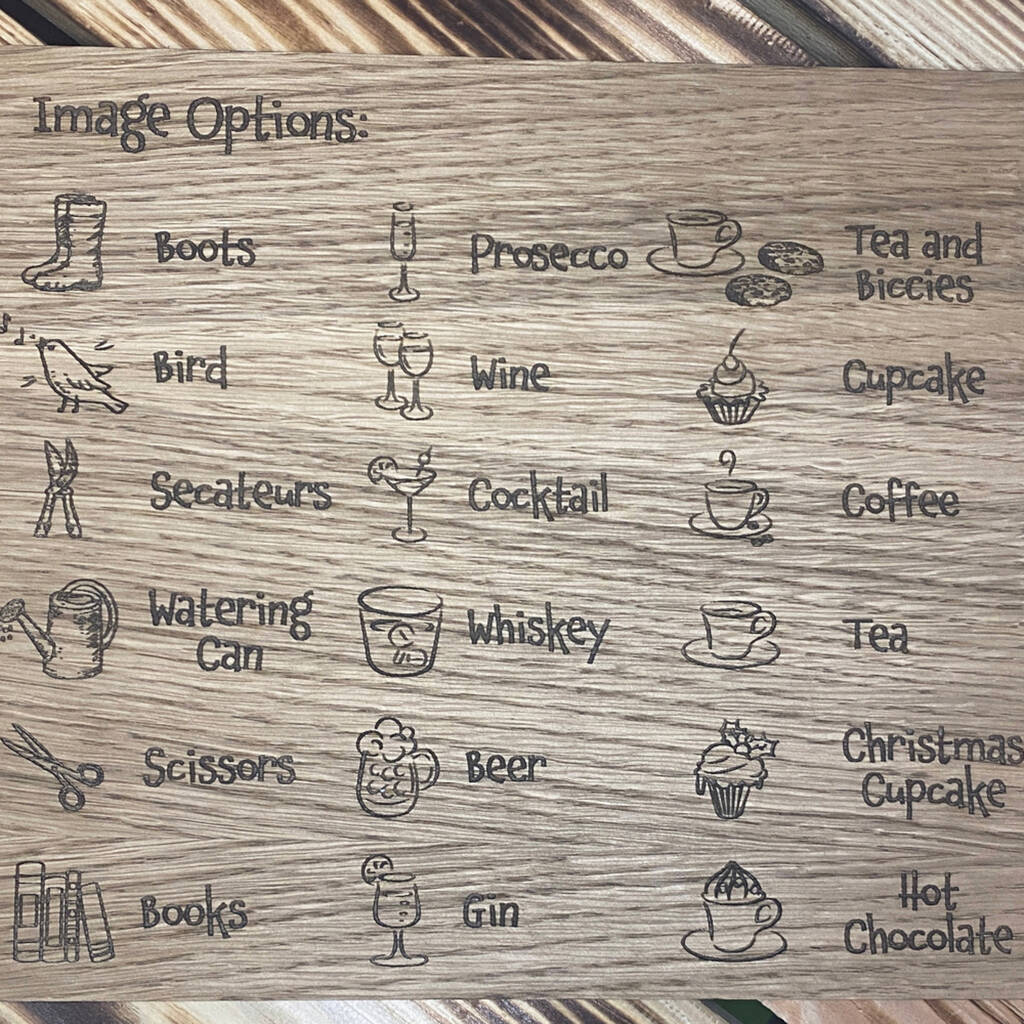 Image Options:
Boots
Prosecco
Tea and
Biccies
Bird
Wine
Cupcake
Secateurs
Cocktail
Coffee
Watering
Can
Whiskey
Tea
Scissors
Beer
Christmas
Cupcake
Books
Gin
Hot
Chocolate